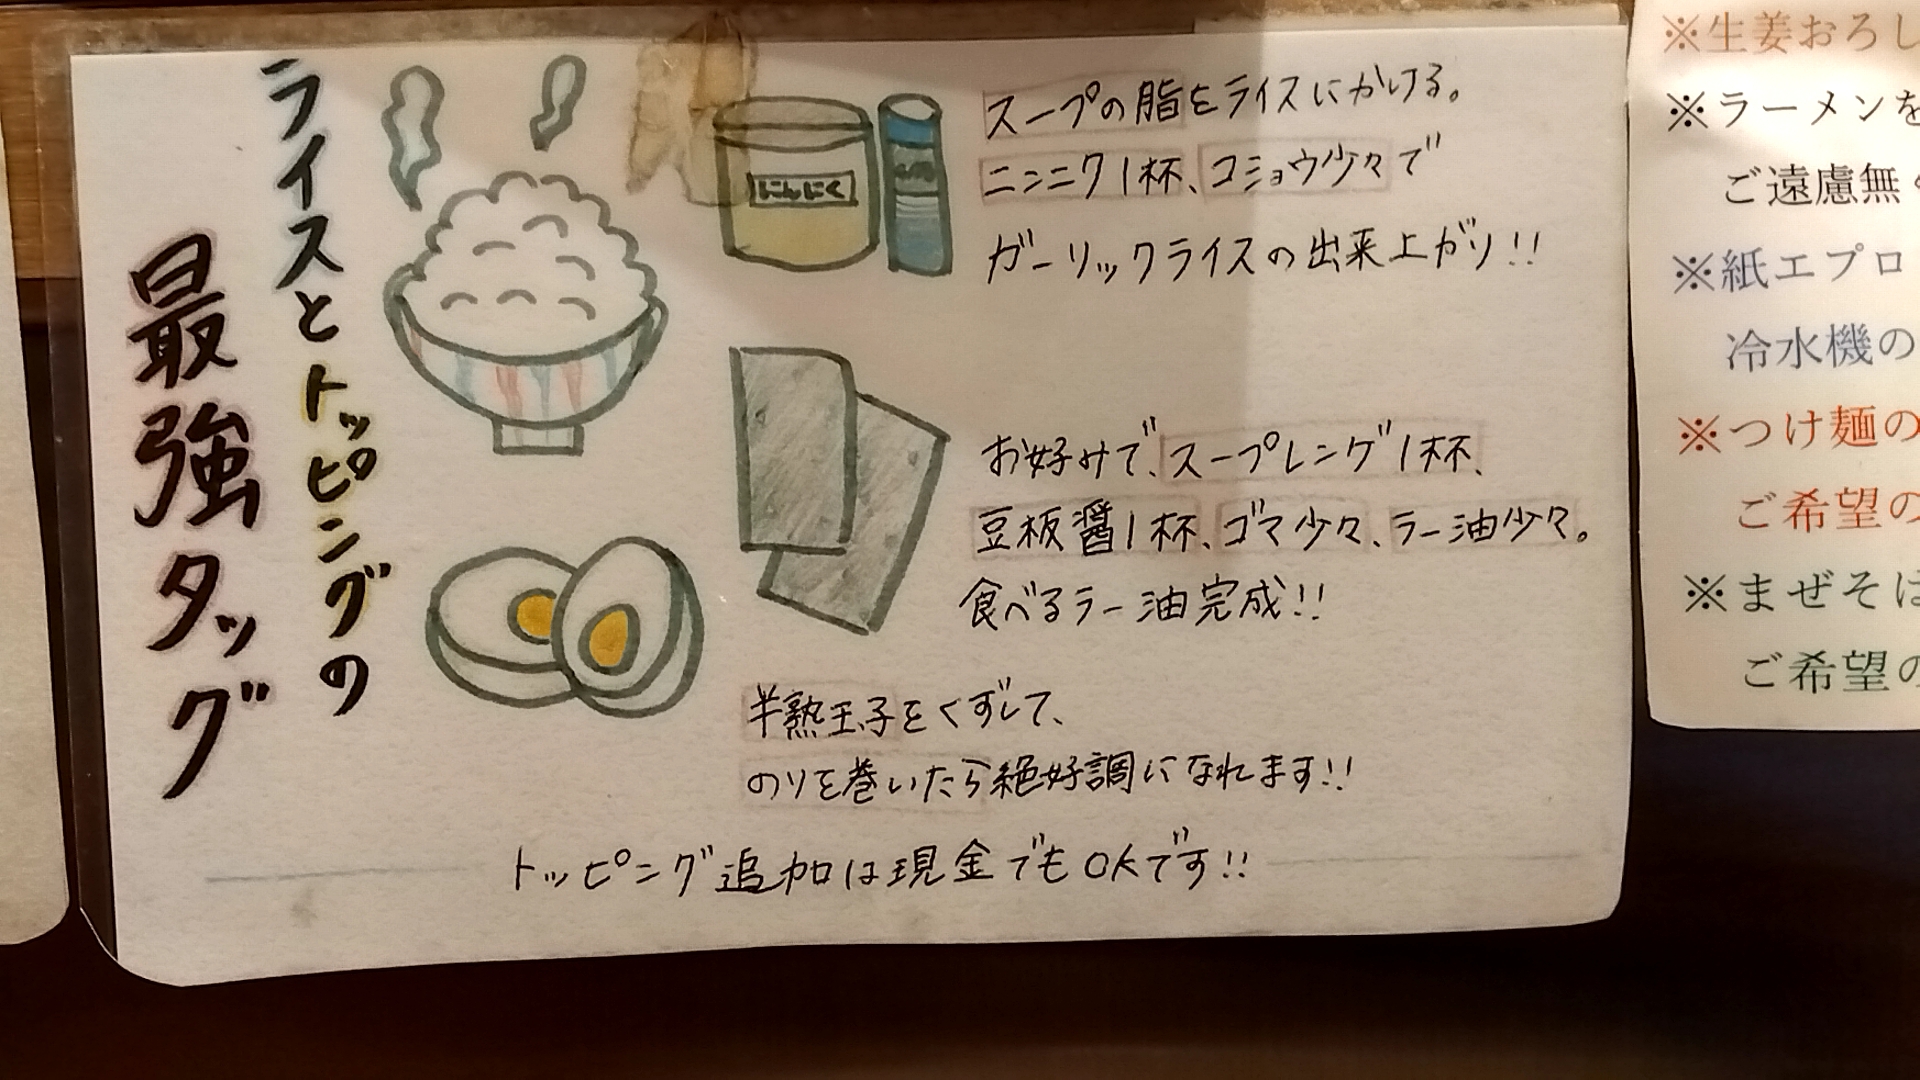 ライスとトッピングの
最強タッグ
にんにく
スープの脂をライスにかける。
ニンニク1杯、コショウ少々で
ガーリックライスの出来上がり!!
お好みで、スープレンゲ1杯、
豆板醤1杯、ゴマ少々、ラー油少々。
食べるラー油完成!!
半熟玉子をくずして、
のりを巻いたら絶好調になれます!!
トッピング追加は現金でもOKです!!
※生姜おろし
※ラーメンを
ご遠慮無
※紙エプロ
冷水機の
※つけ麺の
ご希望の
※まぜそば
ご希望の